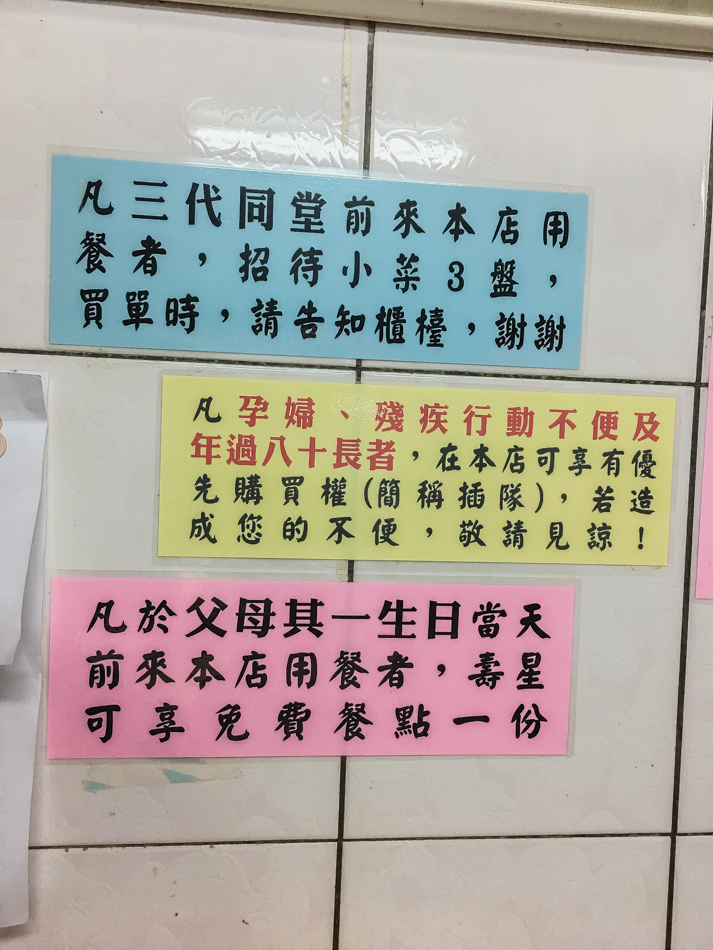 凡三代同堂前來本店用
餐者，招待小菜3盤，
買單時，請告知櫃檯，謝謝
凡孕婦、殘疾行動不便及
年過八十長者，在本店可享有優
先購買權(簡稱插隊)，若造
成您的不便，敬請見諒！
凡於父母其一生日當天
前來本店用餐者，壽星
可享免費餐點一份